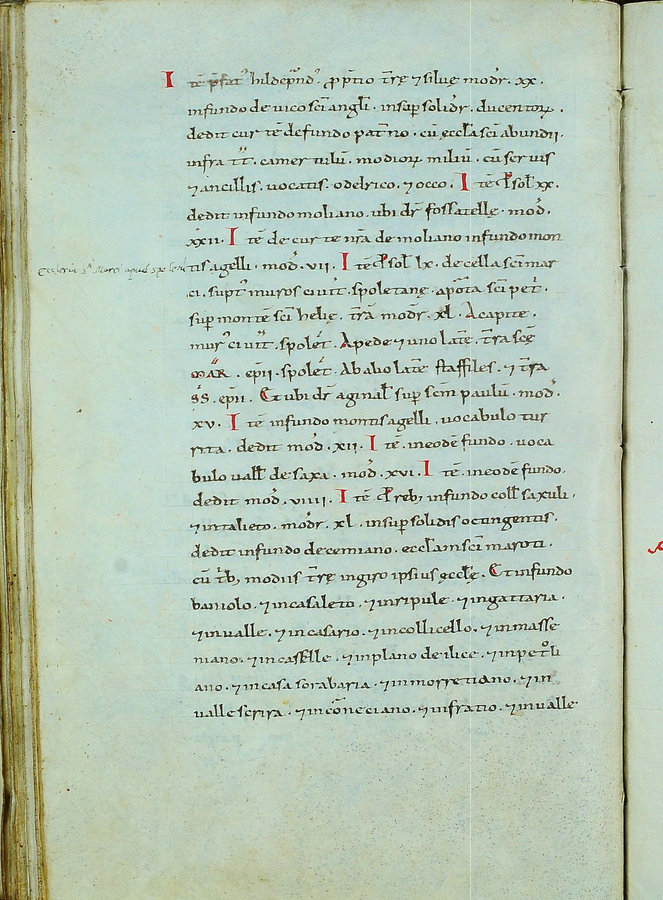 Itē p̄fat᾽ hildep̄nd᾽. ꝓ p̄tio t̄rę ⁊ siluę modr̄. xx.
infundo de uico sc̄i angl̄i. insup̄ solidr̄. ducentoꝝ.
dedit curtē de fundo pat̄no. cū eccl̄a sc̄i abundii.
infra tt̄. camertulū. modioꝝ miliū. cū seruis
⁊ ancillis. uocatis. odelrico. ⁊ occo. Itē ꝓ sol̄ xx.
dedit infundo moliano. ubi dr̄ fossatelle. mod̄.
xxii. Itē de curte nr̄a de moliano infundo mon
Ecclesia S. Marci apud Spolet
tis agelli. mod̄. vii. Itē ꝓ sol̄ lx. de cella sc̄i mar
ci. supt᾽ muros ciuit̄. spoletanę. a porta sc̄i pet᾽.
sup̄ monte sc̄i helię. t̄rā modr̄. xl. A capite.
mur᾽ ciuit̄. spolet̄. A pede ⁊ uno lat̄e. t̄ra scę̄
MAR. ep̄ii. spolet̄. Ab abo lat̄e staffiles. ⁊ t̄ra
s̄s. ep̄ii. Et ubi dr̄ aginal̄ sup̄ scm̄ paulū. mod̄.
xv. Itē infundo montis agelli. uocabulo tur
rita. dedit mod̄. xii. Itē. ineodē fundo. uoca
bulo uall̄ de saxa. mod̄. xvi. Itē. ineodē fundo.
dedit mod̄. viiii. Itē ꝓ reb; infundo coll̄ saxuli.
⁊ intalieto. modr̄. xl. insup̄ solidis octingentis.
dedit infundo decemiano. eccl̄am sc̄i maroti.
cū trib; modiis t̄rę ingiro ipsius eccl̄ę. Et infundo
baniolo. ⁊ incasaleto. ⁊ inripule. ⁊ ingattaria.
⁊ inualle. ⁊ incasario. ⁊ incollicello. ⁊ inmasse
niano. ⁊ incastelle. ⁊ inplano de ilice. ⁊ inpetroli
ano. ⁊ incasa sorabaria. ⁊ inmorretiano. ⁊ in
ualle scrira. ⁊ incōneciano. ⁊ infratio. ⁊ inualle